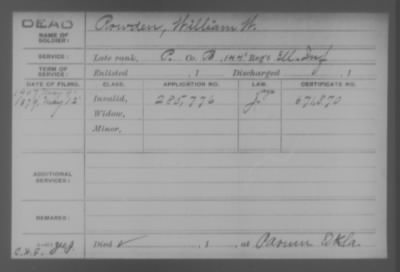 DEAD
NAME OF SOLDIER: Powden, William W.
SERVICE: Late rank, P. Co. B, 144" Reg't Ill. Inf
TERM OF SERVICE: Enlisted , 1 Discharged , 1
DATE OF FILING. CLASS. APPLICATION NO. LAW. CERTIFICATE NO.
1879, May 12 Invalid, 285,776 671870
Widow,
Minor,
ADDITIONAL SERVICES:
REMARKS:
Died , 1 , at Okla.